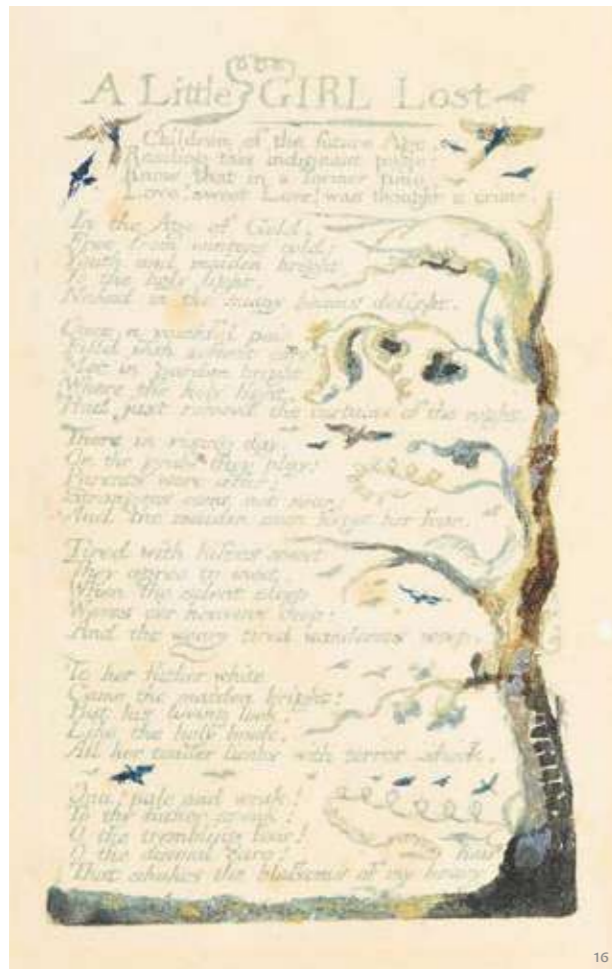 A Little GIRL Lost
Children of the future Age,
Reading this indignant page:
Know that in a former time,
Love! sweet Love! was thought a crime.
In the Age of Gold,
Free from winters cold:
Youth and maiden bright,
To the holy light,
Naked in the sunny beams delight.
Once a youthful pair
Fill'd with softest care:
Met in garden bright,
Where the holy light,
Had just removd the curtains of the night.
There in rising day,
On the grass they play:
Parents were afar:
Strangers came not near:
And the maiden soon forgot her fear.
Tired with kisses sweet
They agree to meet,
When the silent sleep
Waves o'er heavens deep:
And the weary tired wanderers weep.
To her father white
Came the maiden bright:
But his loving look,
Like the holy book,
All her tender limbs with terror shook.
Ona! pale and weak!
To thy father speak:
O the trembling fear!
O the dismal care!
That shakes the blossoms of my hoary hair
16